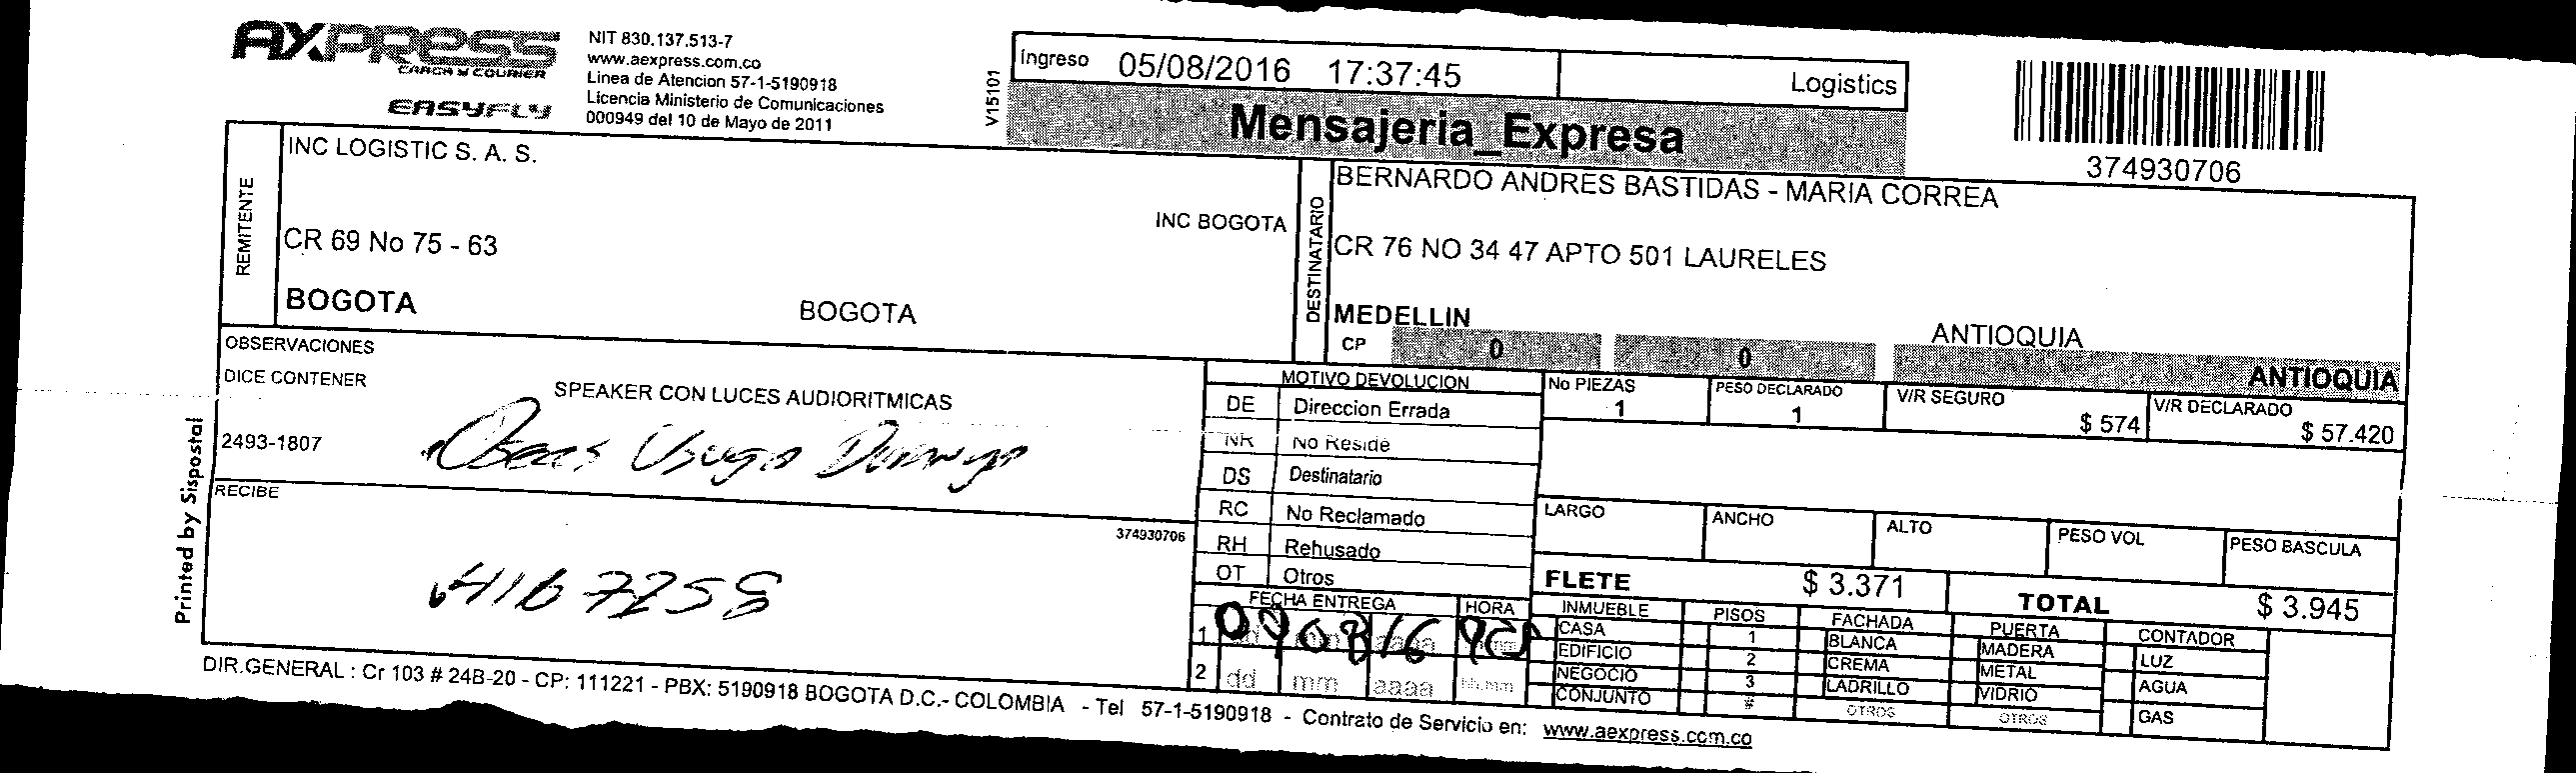 AXPRESS
CARGA Y COURIER
EASYFLY
NIT 830.137.513-7
www.aexpress.com.co
Linea de Atencion 57-1-5190918
Licencia Ministerio de Comunicaciones
000949 del 10 de Mayo de 2011
V15101
Ingreso 05/08/2016 17:37:45
Logistics
Mensajeria_Expresa
374930706
REMITENTE
INC LOGISTIC S. A. S.
INC BOGOTA
CR 69 No 75 - 63
BOGOTA BOGOTA
DESTINATARIO
BERNARDO ANDRES BASTIDAS - MARIA CORREA
CR 76 NO 34 47 APTO 501 LAURELES
MEDELLIN ANTIOQUIA
CP 0 0 ANTIOQUIA
OBSERVACIONES
DICE CONTENER
SPEAKER CON LUCES AUDIORITMICAS
2493-1807
Usuga
RECIBE
374930706
Printed by Sispostal
MOTIVO DEVOLUCION
DE Direccion Errada
NR No Reside
DS Destinatario
RC No Reclamado
RH Rehusado
OT Otros
FECHA ENTREGA HORA
1 09 08 16
2 dd mm aaaa hh:mm
No PIEZAS
1
PESO DECLARADO
1
V/R SEGURO
$ 574
V/R DECLARADO
$ 57.420
LARGO ANCHO ALTO PESO VOL PESO BASCULA
FLETE $ 3.371 TOTAL $ 3.945
INMUEBLE PISOS FACHADA PUERTA CONTADOR
CASA 1 BLANCA MADERA LUZ
EDIFICIO 2 CREMA METAL AGUA
NEGOCIO 3 LADRILLO VIDRIO GAS
CONJUNTO # OTROS OTROS
DIR.GENERAL : Cr 103 # 24B-20 - CP: 111221 - PBX: 5190918 BOGOTA D.C.- COLOMBIA - Tel 57-1-5190918 - Contrato de Servicio en: www.aexpress.com.co